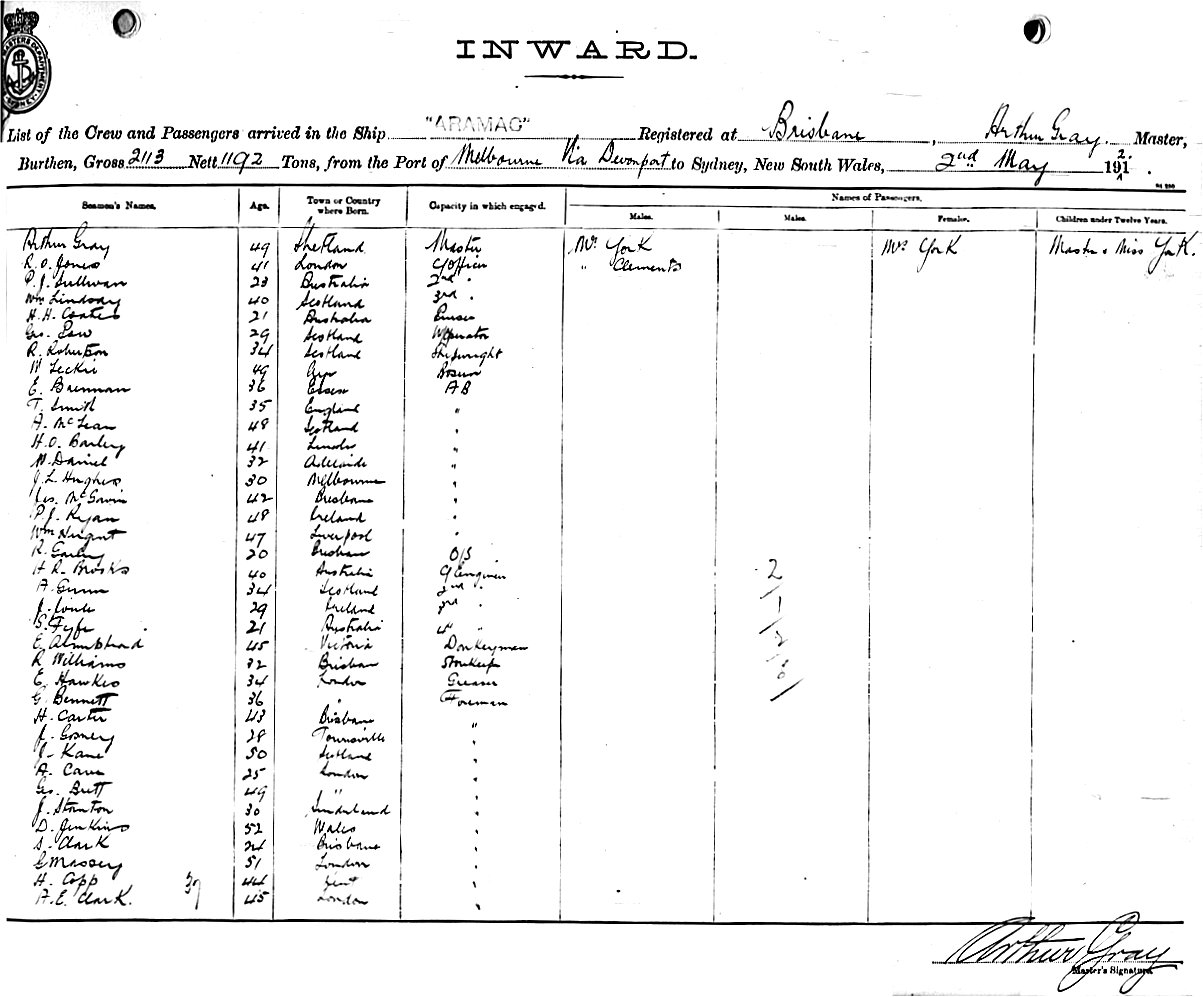 MASTERS DEPARTMENT SYDNEY
INWARD.
List of the Crew and Passengers arrived in the Ship "ARAMAC" Registered at Brisbane, Arthur Gray, Master,
Burthen, Gross 2113 Nett 1192 Tons, from the Port of Melbourne Via Devonport to Sydney, New South Wales, 2nd May 1912.
Seamen's Names. Age. Town or Country where Born. Capacity in which engaged. Names of Passengers.
Males. Males. Females. Children under Twelve Years.
Arthur Gray 49 Shetland Master Mr York Mrs York Master & Miss York.
R. O. Jones 41 London C/Officer " Clements
P. J. Sullivan 23 Australia 2nd "
Wm Lindsay 40 Scotland 3rd "
H. H. Coates 21 Australia Purser
Geo. Law 29 Scotland W/Operator
R. Robertson 34 Scotland Shipwright
W. Leckie 49 Bosun
E. Brennan 36 Essex AB
T. Smith 35 England "
A. McLean 48 Scotland "
H. O. 41 "
W. Daniel 32 Adelaide "
J. L. Hughes 30 Melbourne "
Jas. McGavin 42 Brisbane "
P. J. Ryan 48 Ireland "
Wm Nugent 47 Liverpool
R. 20 Brisbane O/S
H R. Brooks 40 Australia C/Engineer
A. Gunn 34 Scotland 2nd "
J. 29 Ireland 3rd "
S. Fyfe 21 Australia 4th "
E. 45 Victoria Donkeyman
R Williams 32 Brisbane Storekeep
E. Hawkes 34 London Greaser
G. Bennett 36 " Fireman
H. Carter 43 Brisbane "
J. 28 Townsville "
J. Kane 50 Scotland "
A. Cave 25 London "
Geo. Brett 49 " "
J. Stanton 30 Sunderland "
D. Jenkins 52 Wales "
S. Clark 24 Brisbane "
G Massey 51 London "
H. Copp 37 44 Kent "
A. E. Clark. 45 London "
Arthur Gray
Master's Signature.